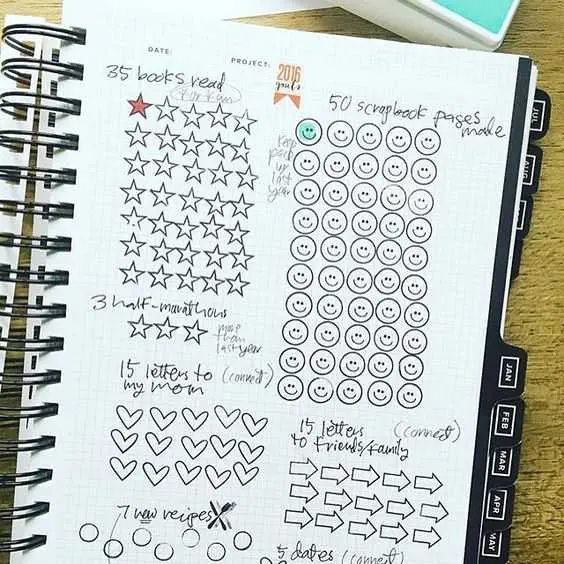 DATE:
PROJECT:
2016
goals
35 books read
for fun
50 scrapbook pages
made
keep
last
year
3 half-marathons
more
than
last year
15 letters to (connect)
my mom
15 letters (connect)
to friends/family
7 new recipes
5 dates (connect)
JUL
AUG
JAN
FEB
MAR
APR
MAY